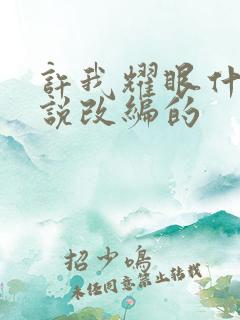 許我耀眼什
說改編的
招少鳴
未经同意禁止转载